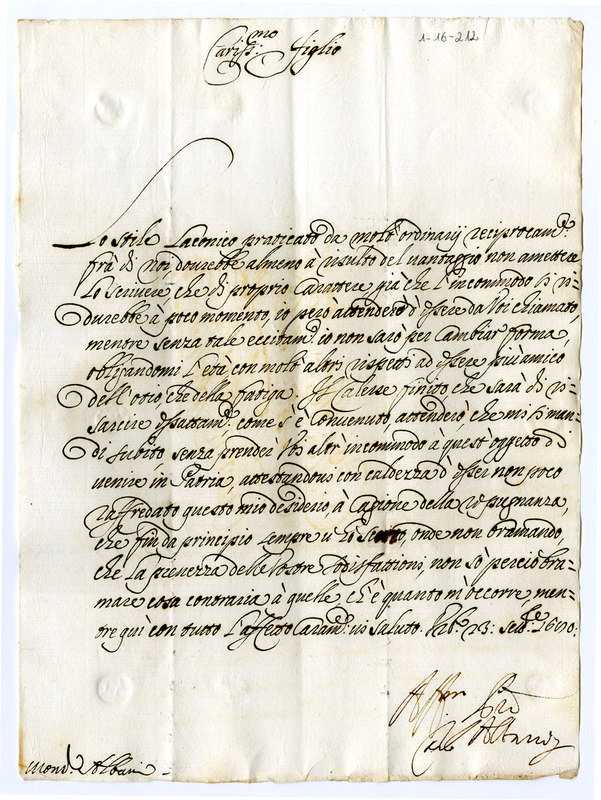 Cariss.mo figlio
1-16-212
Lo stile Laconico praticato da molti ordinarij reciprocam.te
frà di noi, dourebbe almeno à risulto del uantaggio non amettere
Lo scriuere, che di proprio Carattere, già che l'incommodo si ri=
durebbe à poco momento, io però attenderò d'essere da Voi chiamato,
mentre senza tale eccitam.to io non sarò per Cambiar forma,
obligandomi l'età con molti altri rispetti ad essere più amico
dell'otio che della fatiga. Il Calesse finito che sarà di ri=
sarcire essattam.te come s'è Conuenuto, attenderò che mi si man=
di subito senza prender Voi altr'incommodo à quest'oggetto di
uenire in Patria, attestandoui con caldezza d'essersi non poco
raffredato questo mio desiderio, à Cagione della repugnanza,
che fin da principio sempre u'hò onde non bramando,
che la pienezza delle Vostre sodisfattioni, non sò perciò bra=
mare cosa contraria à quelle, ch'è quanto m'occorre, men=
tre quì con tutto l'affetto Caram.te ui saluto. 23: 1690:
Aff.mo
Albani
Mons.r Albani